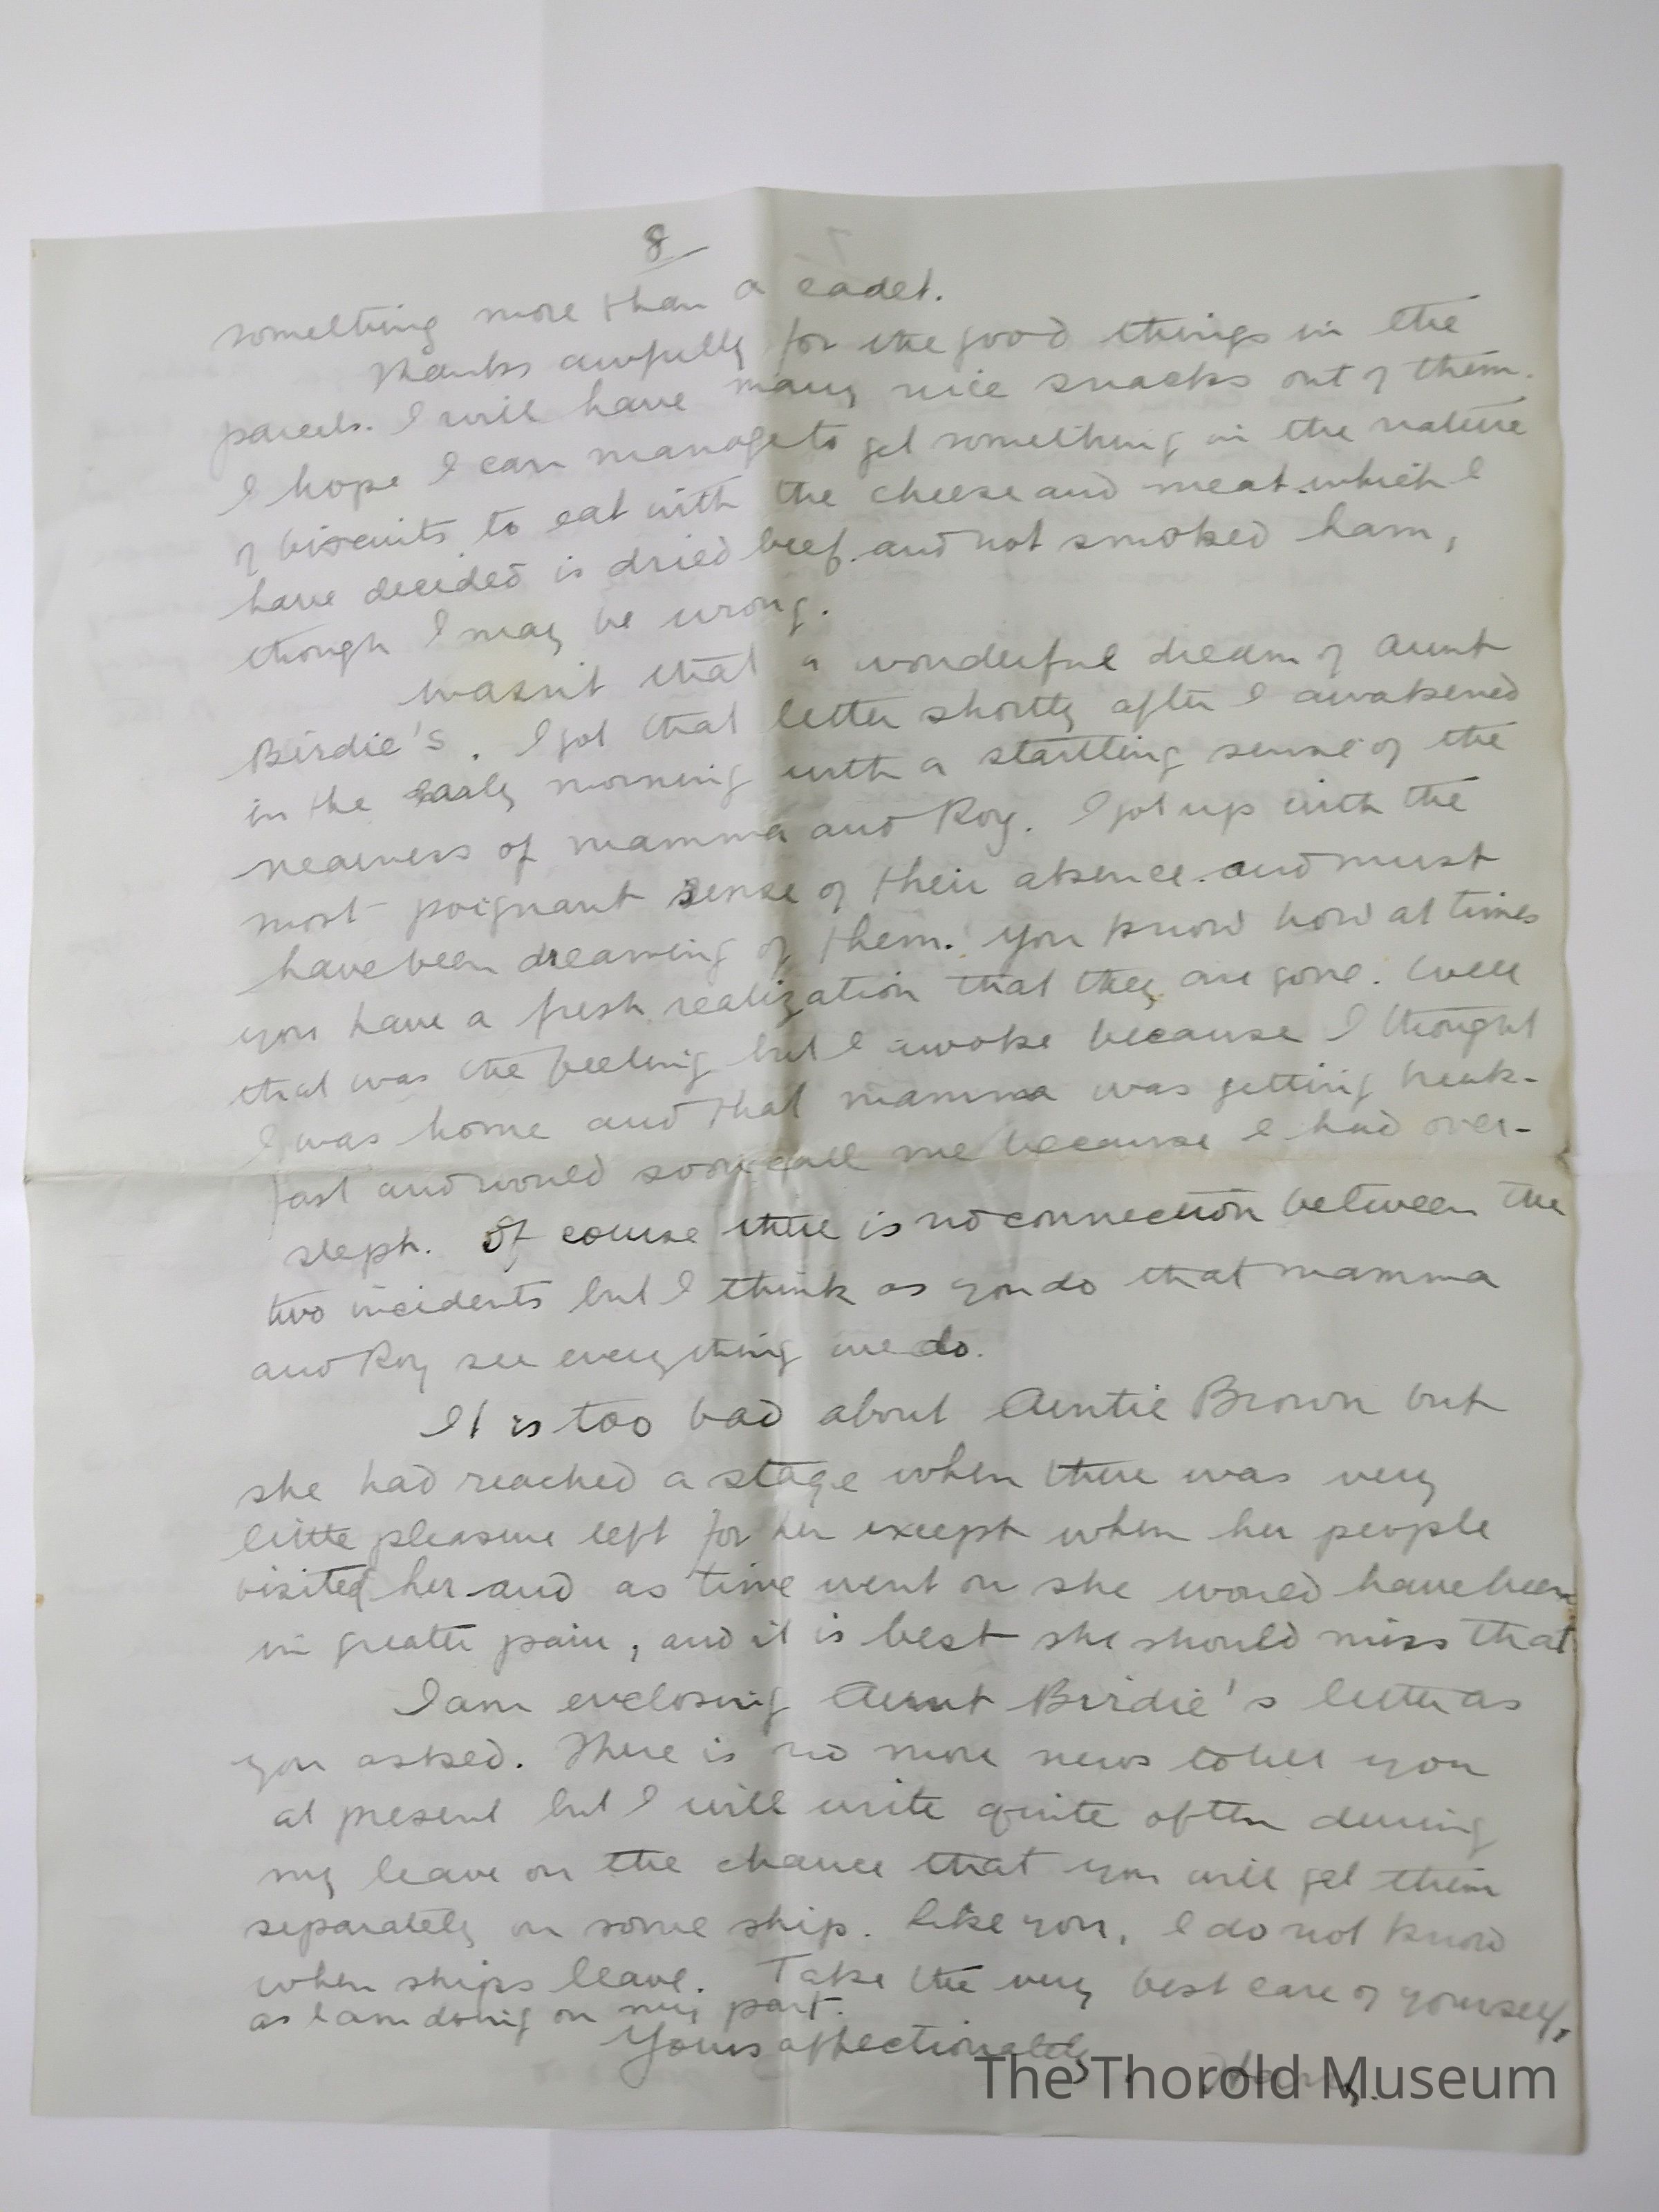 8
something more than a cadet.
Thanks awfully for the good things in the
parcels. I will have many nice snacks out of them.
I hope I can manage to get something in the nature
of biscuits to eat with the cheese and meat which I
have decided is dried beef and not smoked ham,
though I may be wrong.
Wasn't that a wonderful dream of Aunt
Birdie's. I got that letter shortly after I awakened
in the early morning with a startling sense of the
nearness of mamma and Roy. I got up with the
most poignant sense of their absence and must
have been dreaming of them. You know how at times
you have a fresh realization that they are gone. Well
that was the feeling but I awoke because I thought
I was home and that mamma was getting break-
fast and would soon call me because I had over-
slept. Of course there is no connection between the
two incidents but I think as you do that mamma
and Roy see everything we do.
It is too bad about Auntie Brown but
she had reached a stage when there was very
little pleasure left for her except when her people
visited her and as time went on she would have been
in greater pain, and it is best she should miss that
I am enclosing Aunt Birdie's letter as
you asked. There is no more news to tell you
at present but I will write quite often during
my leave on the chance that you will get them
separately on some ship. Like you, I do not know
when ships leave. Take the very best care of yourself,
as I am doing on my part.
Yours affectionately
The Thorold Museum